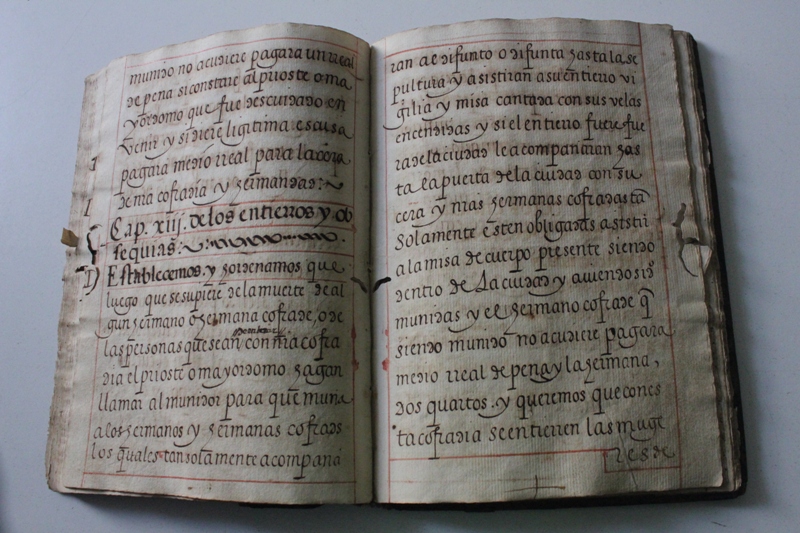 munido no acudiere pagara un rreal
de pena si constare al prioste o ma
yordomo que fue descuidado en
venir y si diere ligitima escusa
pagara medio rreal para la cera
de nra cofradia y hermandad:
Cap. xiij. de los entierros y ob
sequias.
Establecemos. y hordenamos que
luego que se supiere de la muerte de al
gun hermano o hermana cofrade, o de
las personas que sean con nra cofra
dia el prioste o mayordomo hagan
llamar al munidor para que muna
a los hermanos y hermanas cofrades
los quales tan solamente acompaña
ran al difunto o difunta hasta la se
pultura y asistiran a su entierro vi
gilia y misa cantada con sus velas
encendidas y si el entierro fuere fue
ra de la ciudad le acompañaran has
ta la puerta de la ciudad con su
cera y nras hermanas cofradas tã
Solamente esten obligadas a sistir
a la misa de cuerpo presente siendo
dentro de la ciudad y auiendo sido
munidas y el hermano cofrade q̃
siendo munido no acudiere pagara
medio rreal de pena y la hermana,
dos quartos. y queremos que en es
ta cofradia se entierren las muge
res de